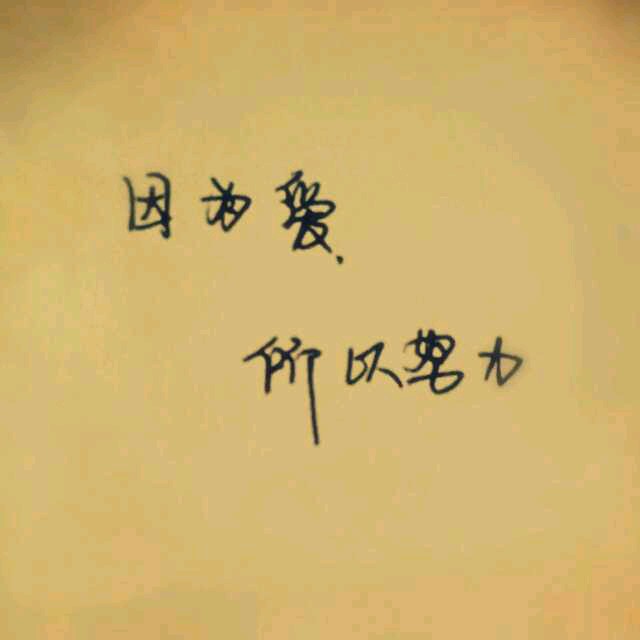 因为爱.
所以努力